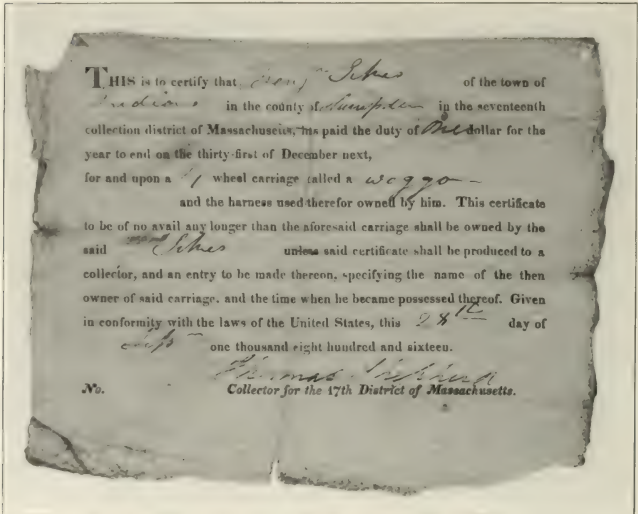 THIS is to certify that Benjn Sikes of the town of
in the county of Hampden in the seventeenth
collection district of Massachusetts, has paid the duty of One dollar for the
year to end on the thirty-first of December next,
for and upon a 4 wheel carriage called a waggo
and the harness used therefor owned by him. This certificate
to be of no avail any longer than the aforesaid carriage shall be owned by the
said Sikes unless said certificate shall be produced to a
collector, and an entry to be made thereon, specifying the name of the then
owner of said carriage, and the time when he became possessed thereof. Given
in conformity with the laws of the United States, this 28th day of
one thousand eight hundred and sixteen.
Thomas Shepherd
No. Collector for the 17th District of Massachusetts.